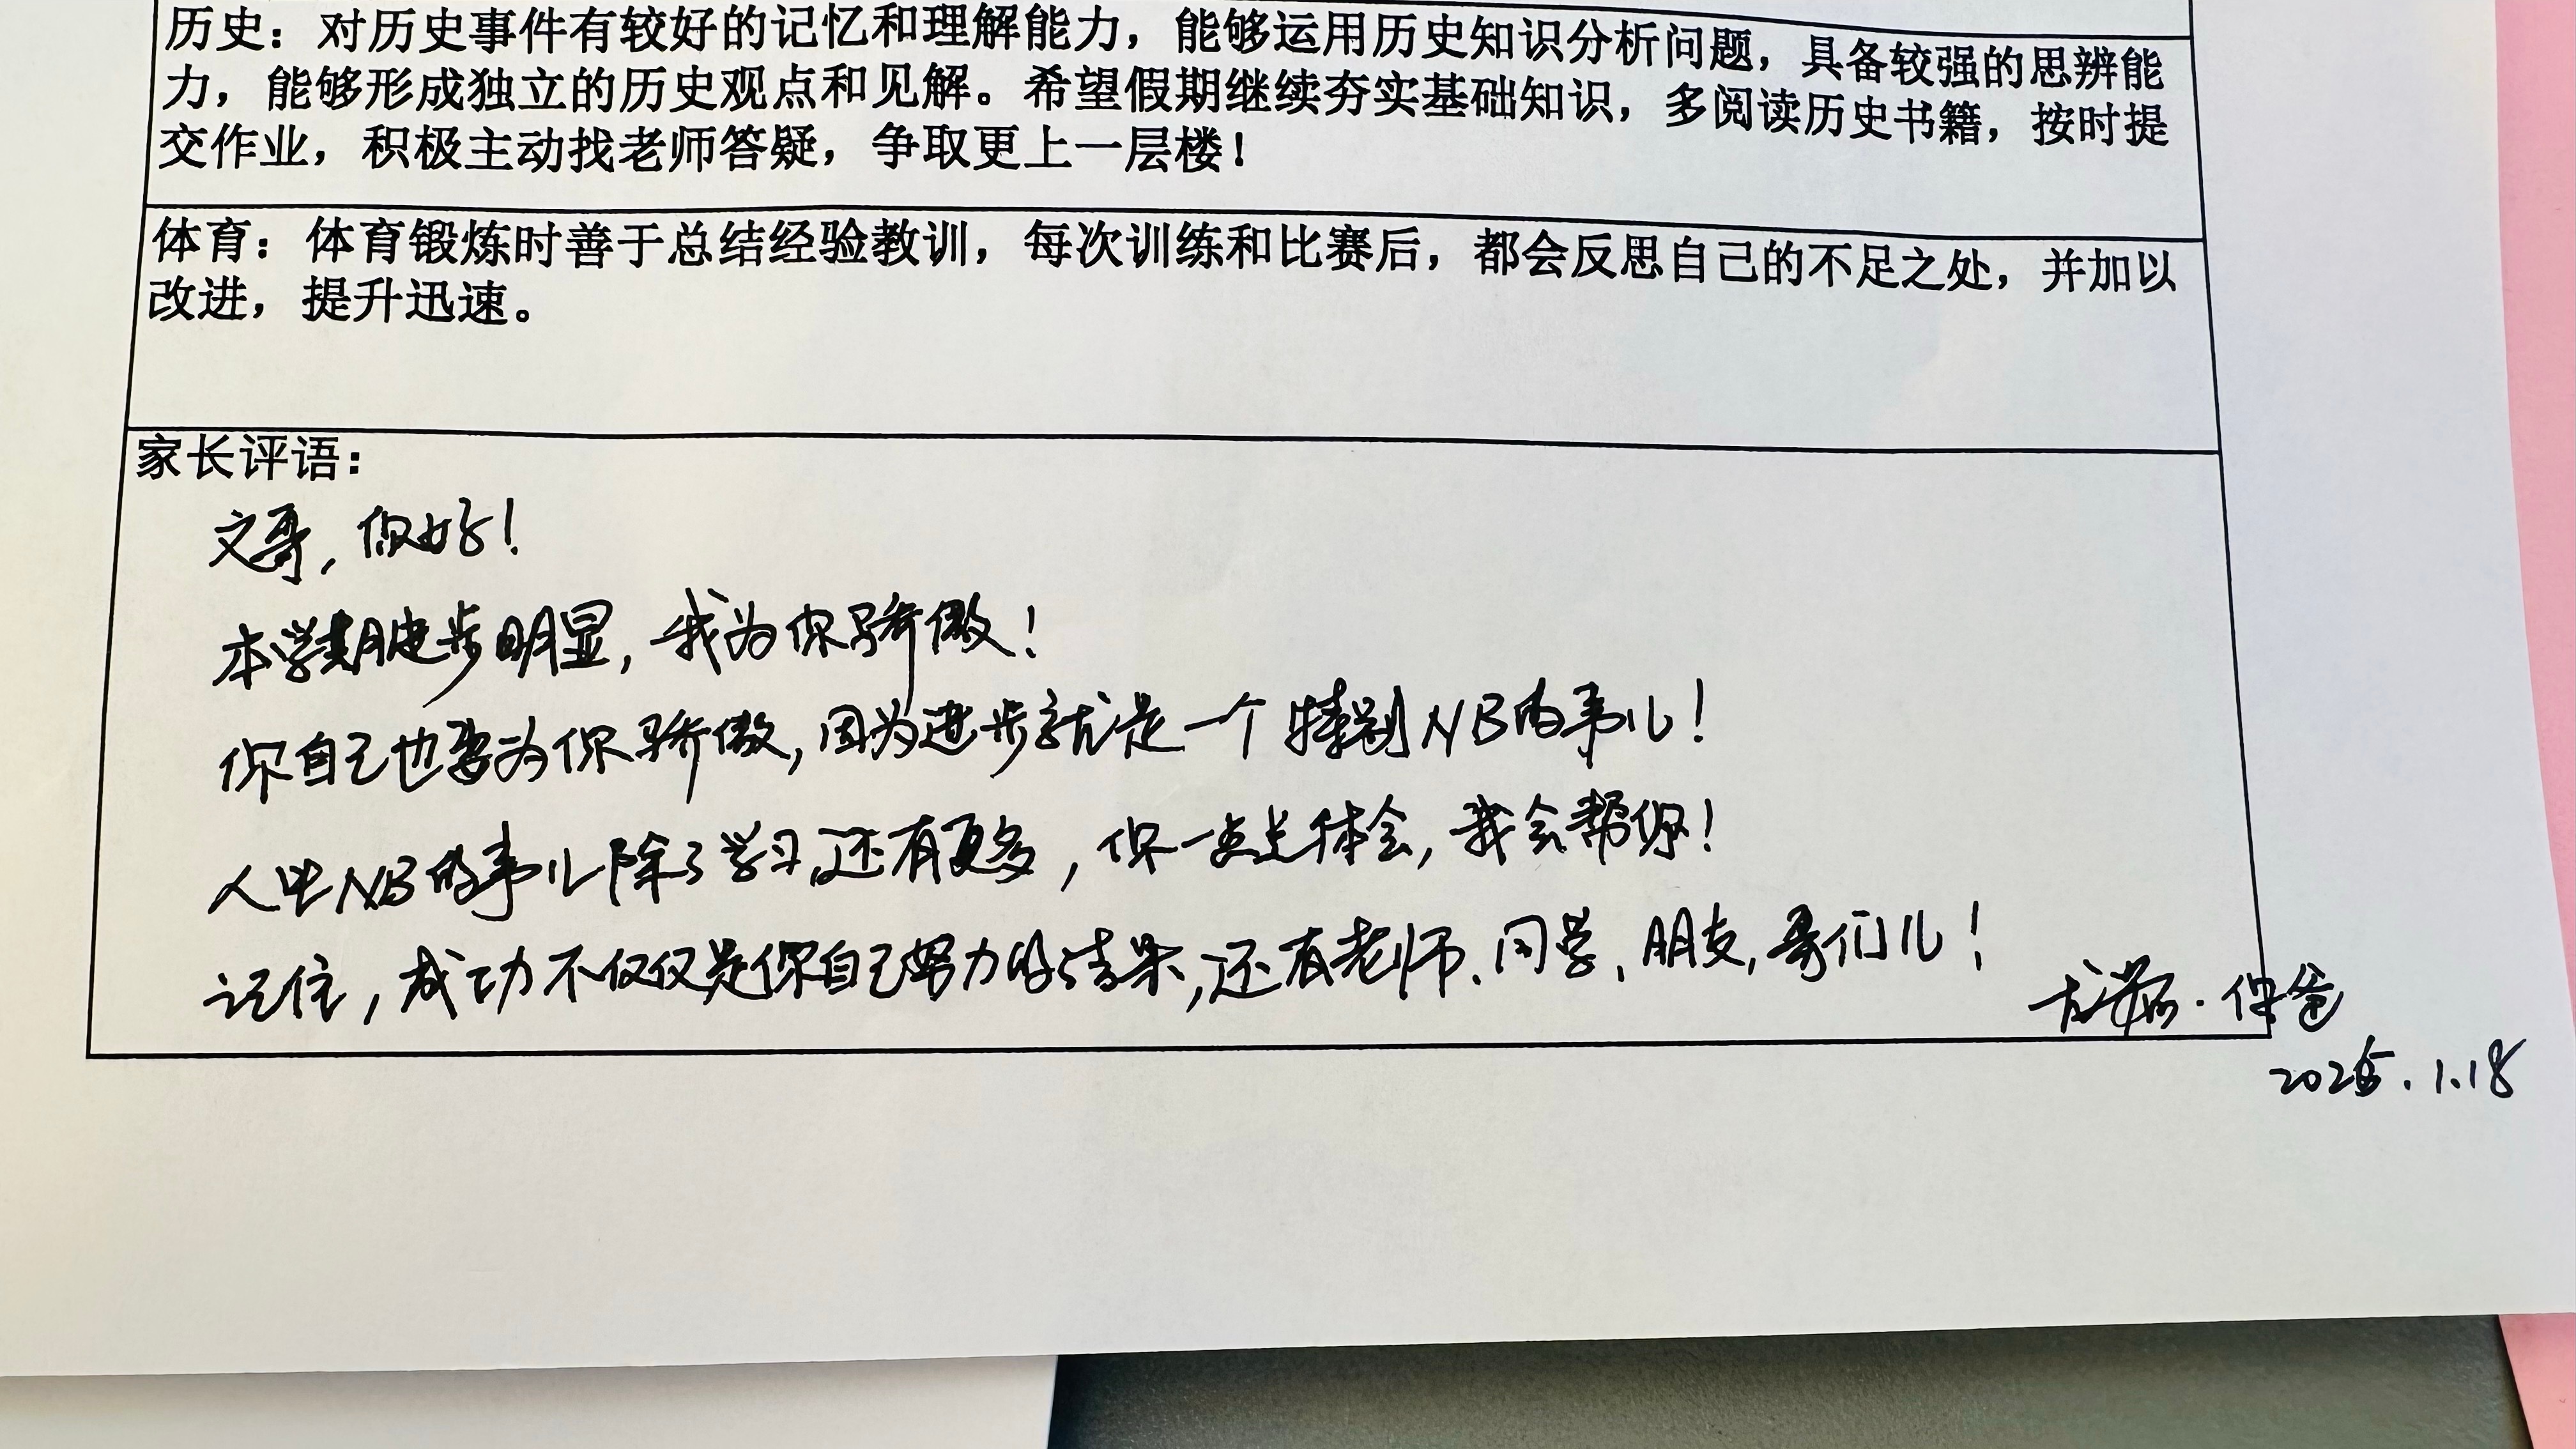 历史：对历史事件有较好的记忆和理解能力，能够运用历史知识分析问题，具备较强的思辨能
力，能够形成独立的历史观点和见解。希望假期继续夯实基础知识，多阅读历史书籍，按时提
交作业，积极主动找老师答疑，争取更上一层楼！
体育：体育锻炼时善于总结经验教训，每次训练和比赛后，都会反思自己的不足之处，并加以
改进，提升迅速。
家长评语：
文哥，你好！
本学期进步明显，我为你骄傲！
你自己也要为你骄傲，因为进步就是一个特别NB的事儿！
人生NB的事儿除了学习，还有更多，你一点点体会，我会帮你！
记住，成功不仅仅是你自己努力的结果，还有老师、同学、朋友，哥们儿！
爸
2025.1.18